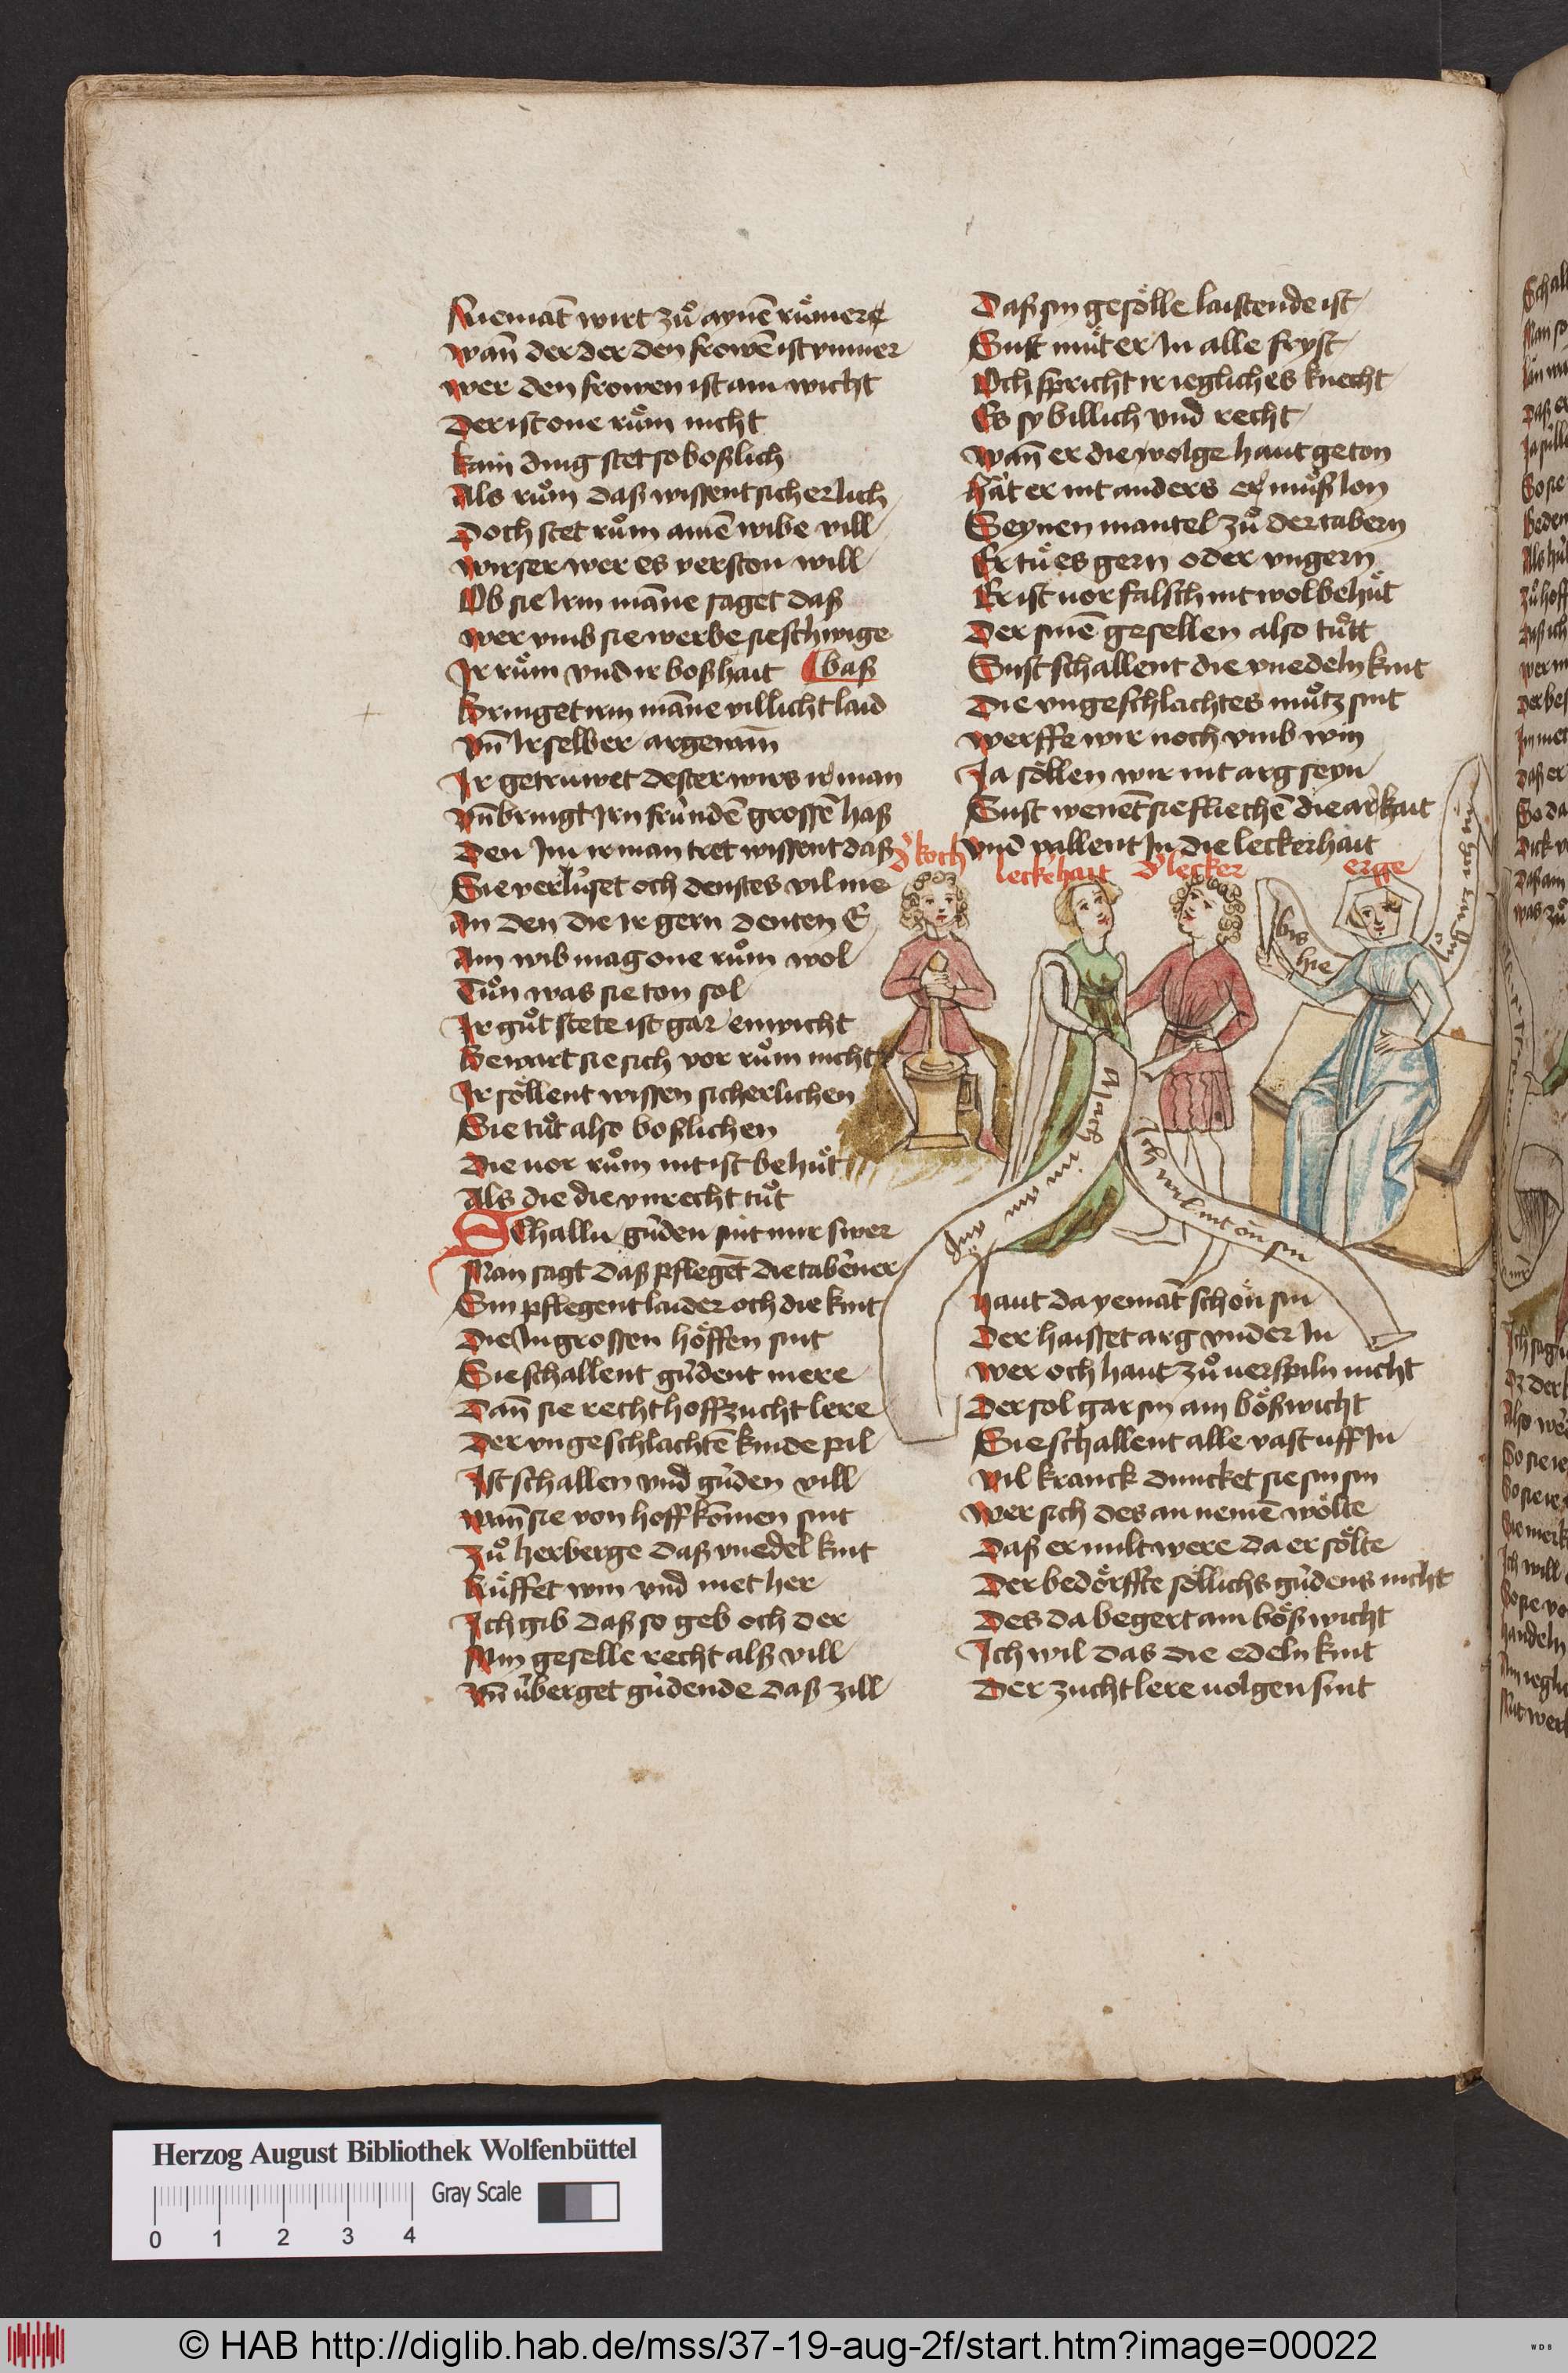 Niemāt wirt zuͦ aynē ruͤmere
wañ der der den frowē ist vnmer
wer den frowen ist ain wicht
Der ist one ruͦm nicht
kain ding stet so boßlich
Als ruͦm daß wissent sicherlich
Doch stet ruͦm ainē wibe vill
wirser wer es verston will
Ob sie irm māne saget daß
wer vmb sie werbe sie schwige
Ir ruͦm vnd ir boßhait baß
Bringet irm māne villicht laid
vn̄ Ir selber argewān
Ir getruwet dester wirs ir man
vn̄ bringt Irn frúndē grossē haß
Den Im ir man tret wissent daß
Sie verlúset och denstes vil me
An den die Ir gern denten E
Ain wib mag one ruͦm wol
Tuͦn was sie ton sol
Ir guͦt stete ist gar enwicht
Bewart sie sich vor ruͦm nicht
Ir söllent wissen sicherlichen
Sie tuͦt also boßlichen
Die uor ruͦm nit ist behuͤt
Als die die vnrecht tuͦt
Schalln gúden sint mir swer
Man sagt daß pflegēt die tabēner
Sin pflegent laider och die kint
Die In grossen höffen sint
Sie schallent gúdent mere
Dañ sie recht hoffzucht lere
Der vngeschlachtē kinde pil
Ist schallen vnd gúden vill
wañ sie von hoff kōmen sint
Zuͦ herberge daß vnedel kint
Ruͤffet win vnd met her
Ich gib daß so geb och der
Min geselle recht alß vill
vn̄ úberget gúdende daß zill
Daß sin gesölle laistende ist
Sust muͤt er In alle fryst
Och spricht ir iegliches knecht
Es sy billich vnd recht
wañ er die volge haut geton
Hät er nit anders er muͦß lon
Seynen mantel zuͦ der tabern
Er tuͤ es gern oder vngern
Er ist uor falsch nit wol behuͤt
Der sinē gesellen also tuͦtt
Sust schallent die vnedeln kint
Die vngeschlachtes muͦtz sint
werffe wir noch vmb win
Ja söllen wir nit arg seyn
Sust wenēt sie fliechē die arkait
vnd vallent In die leckerhait
d' koch
leck'hait
d' lecker
erge
bis hie
Mach im
ich wil nit on sin
haut da yemāt schön sin
Der haisset arg vnder In
wer och haut zuͦ uerspiln nicht
Der sol gar sin ain bößwicht
Sie schallent alle vast uff In
vil kranck duncket sie sin sin
wer sich des an nemē wölte
Daß er milt were da er sölte
Der bedörffte söllichs gúdens nicht
Des da begert ain bößwicht
Ich wil das die edeln kint
Der zucht lere uolgen sint
Herzog August Bibliothek Wolfenbüttel
Gray Scale
0 1 2 3 4
© HAB http://diglib.hab.de/mss/37-19-aug-2f/start.htm?image=00022